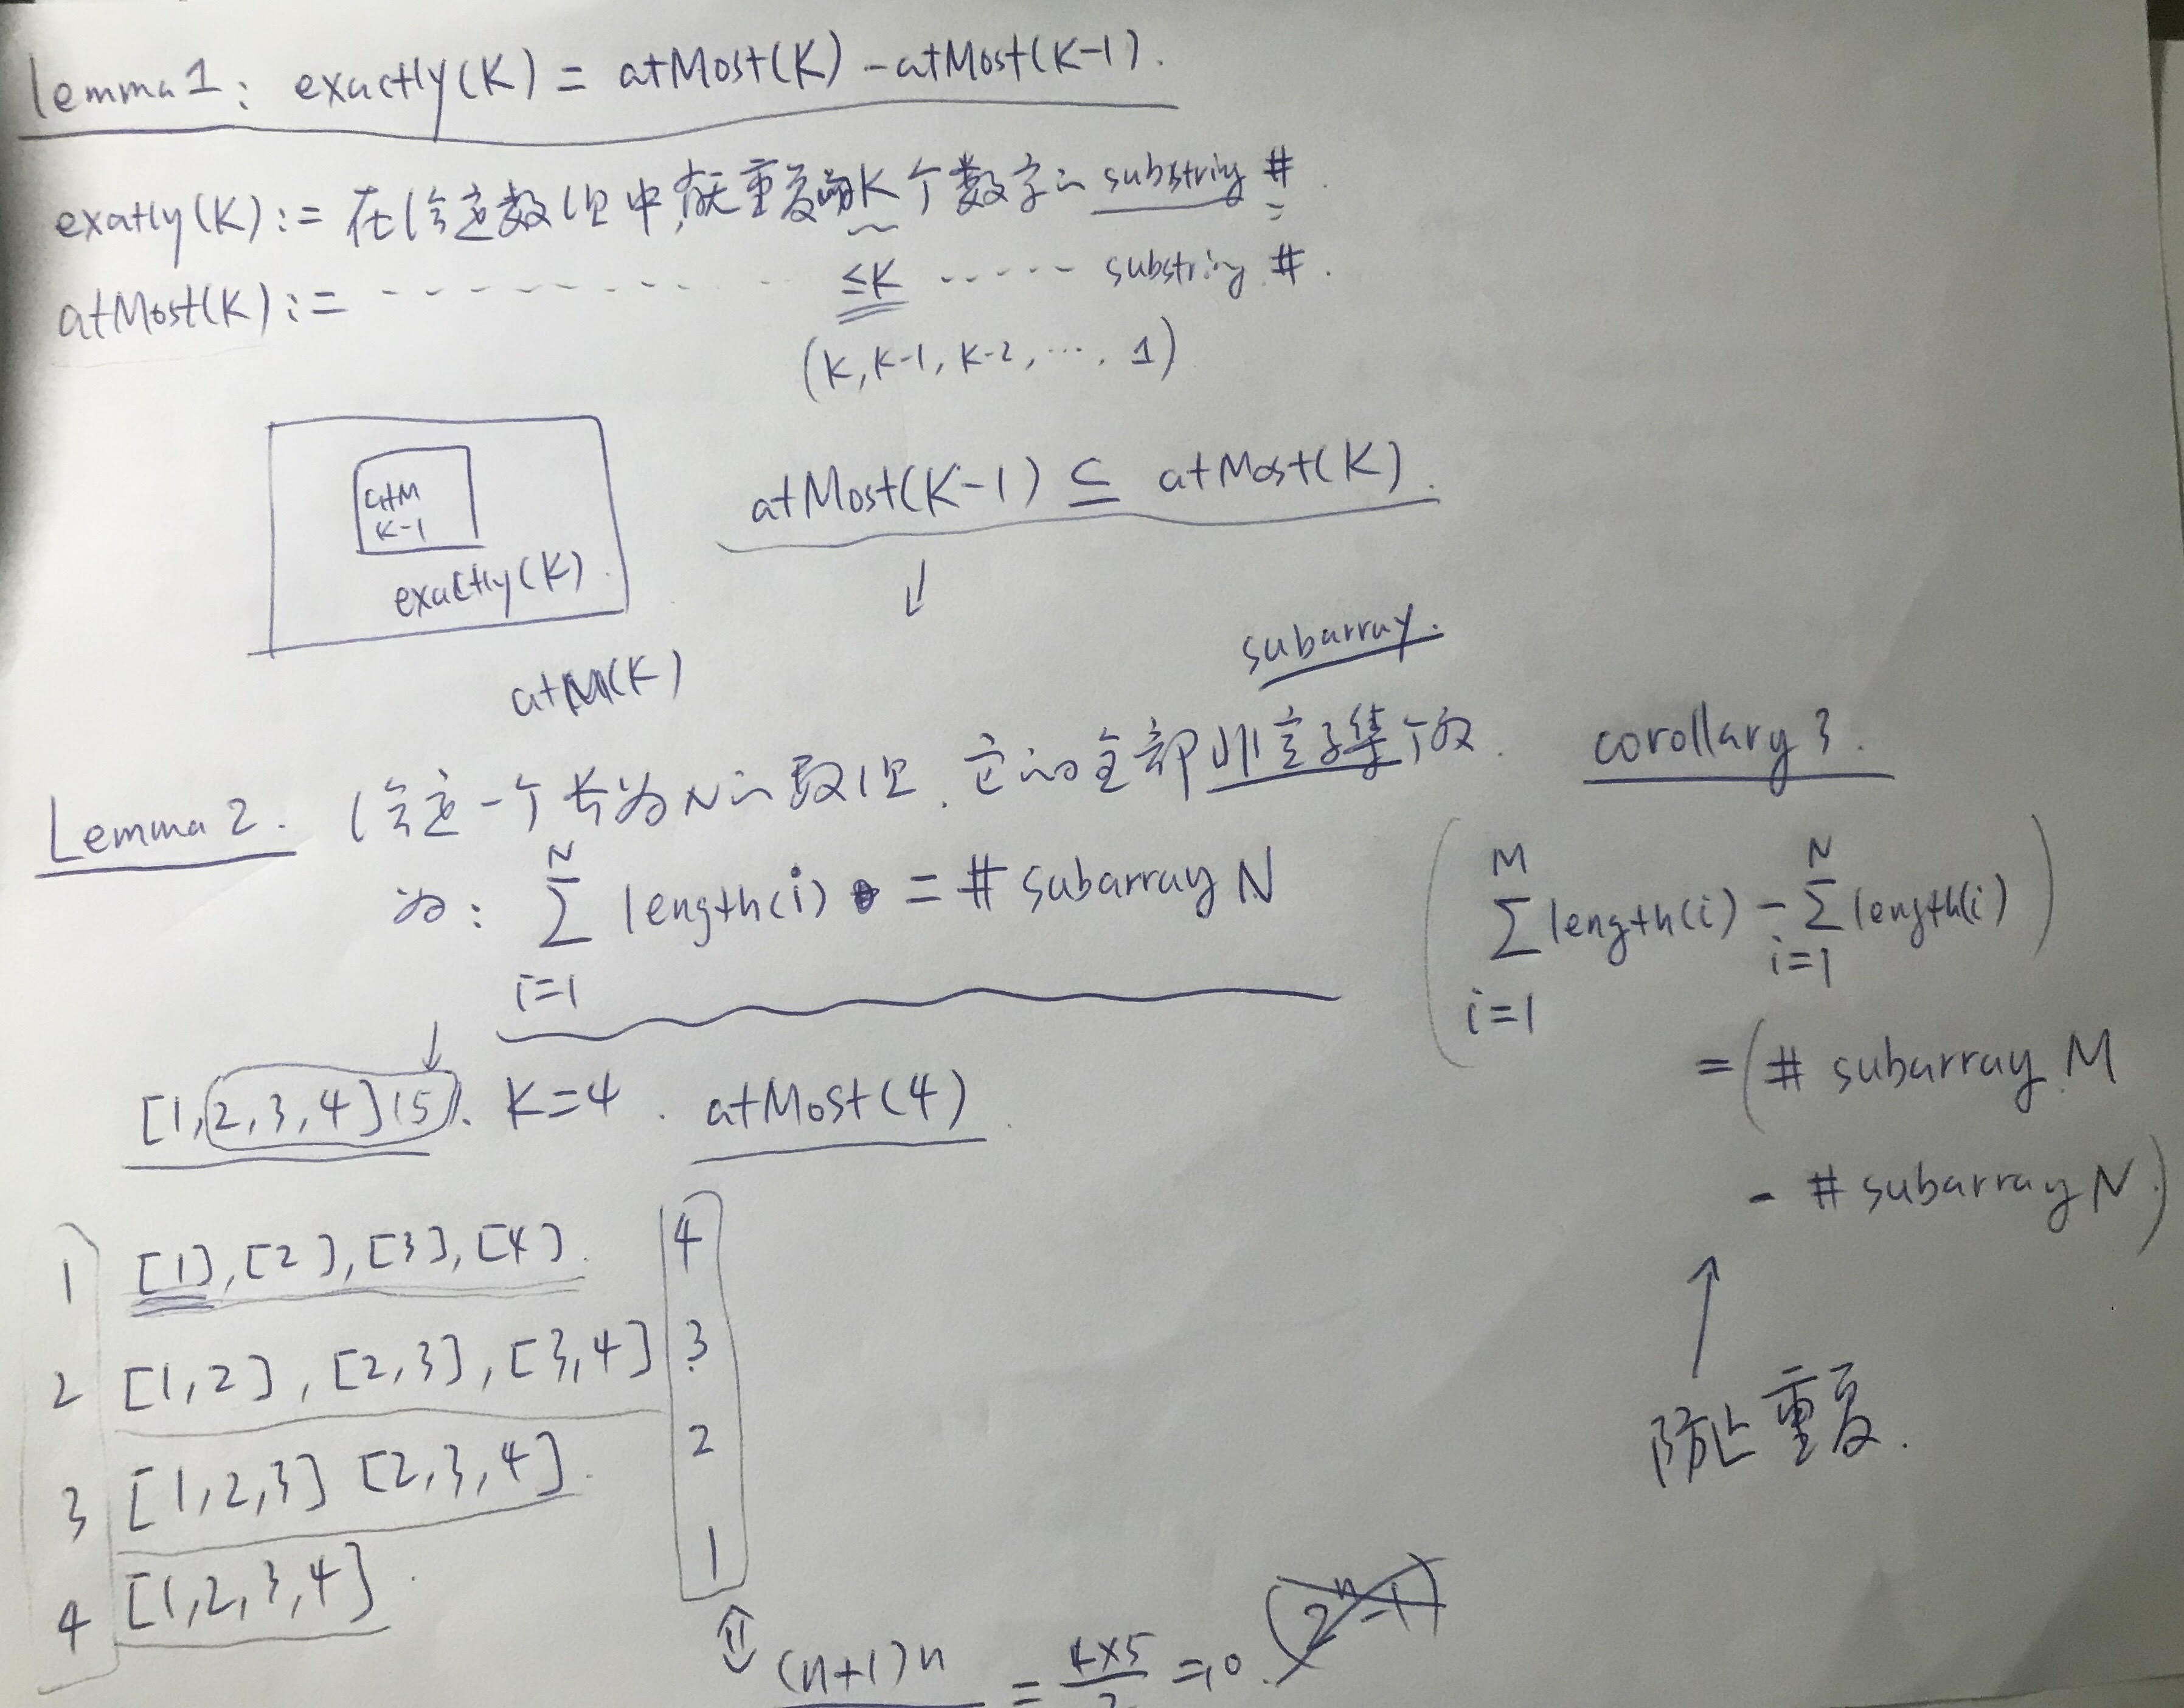 lemma 1: exactly(K) = atMost(K) - atMost(K-1).
exatly(K) := 在给定数组中, 有无重复的K个数字的 substring #.
atMost(K) := - - - - - - - - - ≤K - - - - - substring #.
(K, K-1, K-2, ..., 1)
atM
K-1
exactly(K).
atM(K)
atMost(K-1) ⊆ atMost(K).
↓
subarray.
Lemma 2. 给定一个长为N的数组, 它的全部非空子集个数
为: ∑_{i=1}^{N} length(i) = # subarray N
corollary 3.
( ∑_{i=1}^{M} length(i) - ∑_{i=1}^{N} length(i) )
= (# subarray M
- # subarray N)
↑
防止重复.
↓
[1,2,3,4](5). K=4. atMost(4)
1 [1], [2], [3], [4]. 4
2 [1,2], [2,3], [3,4] 3
3 [1,2,3] [2,3,4]. 2
4 [1,2,3,4]. 1
(n+1)n = 4×5/2 =10. (2^n-1)